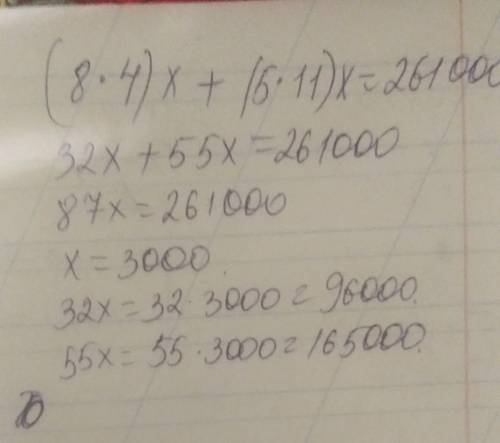 (8·4)x + (5·11)x = 261000
32x + 55x = 261000
87x = 261000
x = 3000.
32x = 32·3000 = 96000.
55x = 55·3000 = 165000.